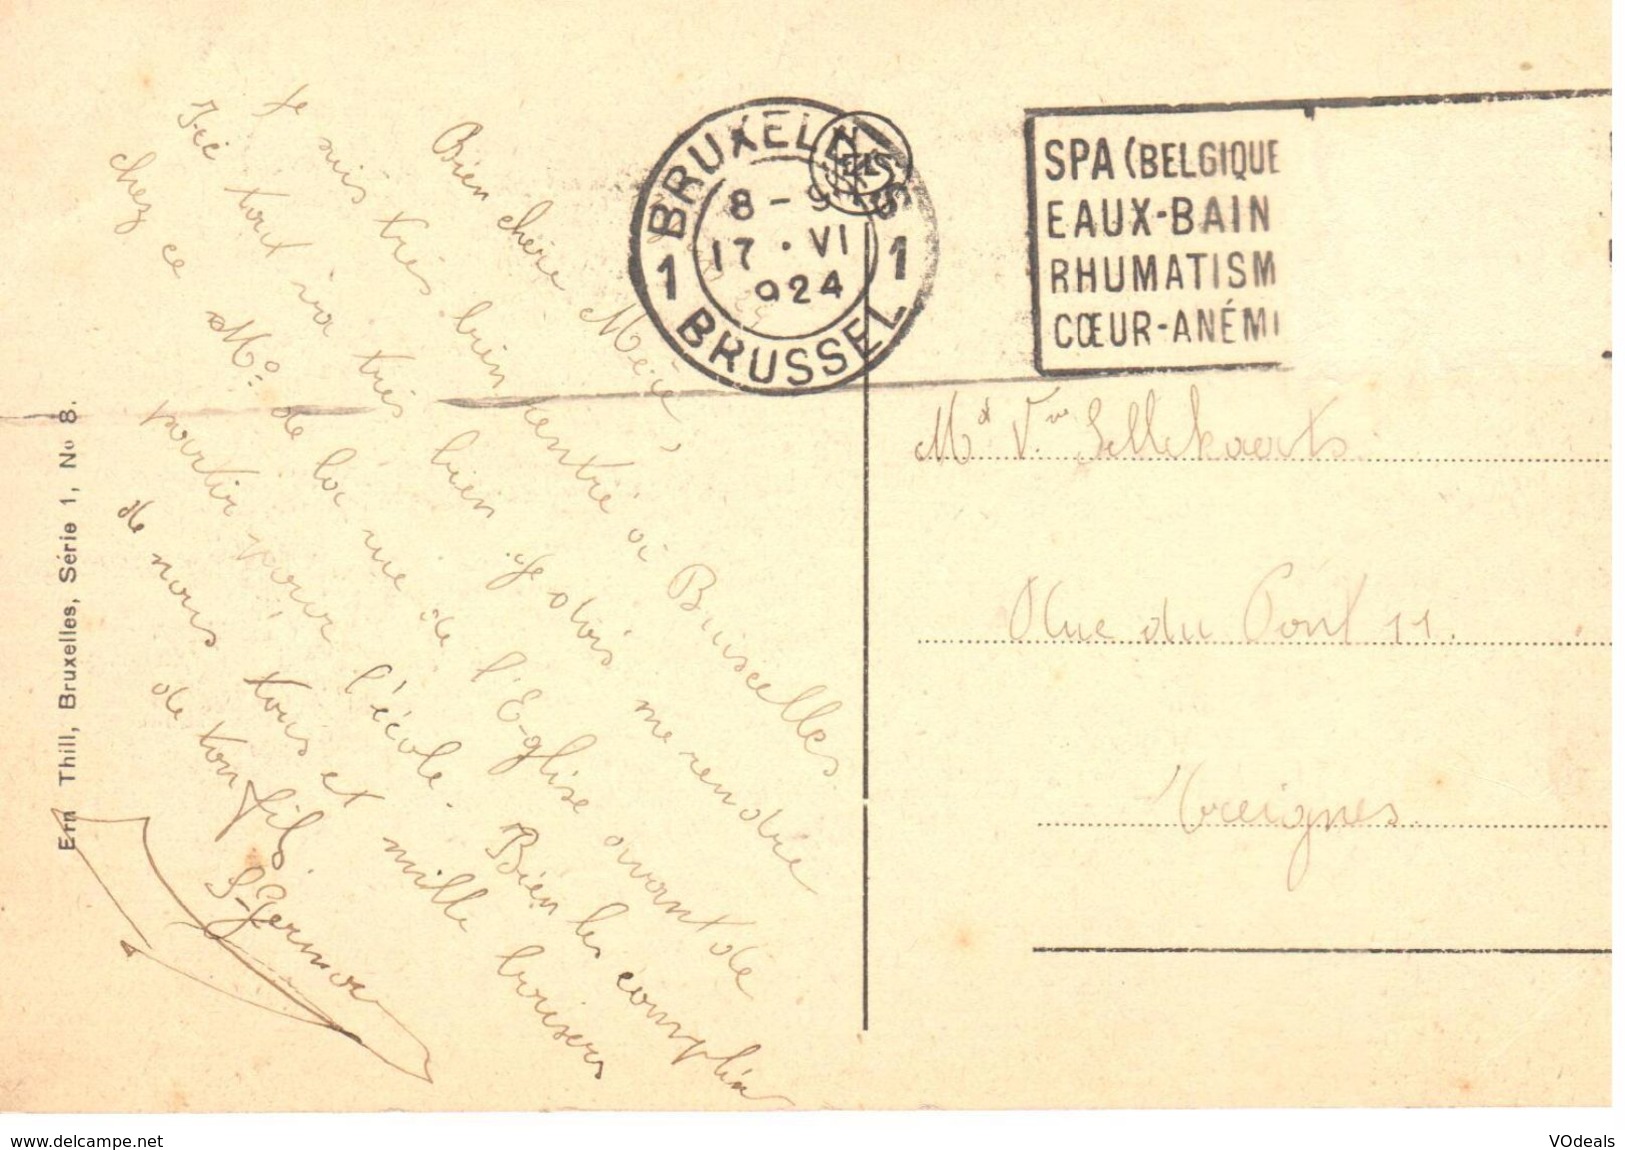 Bien chère Mère,
Je suis très bien rentré à Bruxelles
Ici tout va très bien Je dois me rendre
chez ce Mr. de la rue de l'Eglise avant de
partir pour l'école. Bien les complim
de nous tous et mille baisers
de ton fils.
Ern Thill, Bruxelles, Série 1, No 8.
1 BRUXELLES 1
8 - 9
17 · VI
924
BRUSSEL
SPA (BELGIQUE
EAUX-BAIN
RHUMATISM
CŒUR-ANÉMI
Md Vve Sellekaerts
Rue du Pont 11.
Treignes
www.delcampe.net
VOdeals